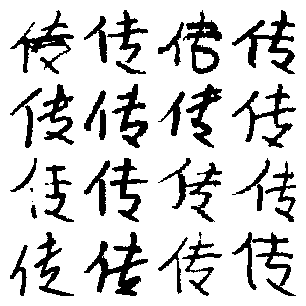 传传传传
传传传传
传传传传
传传传传